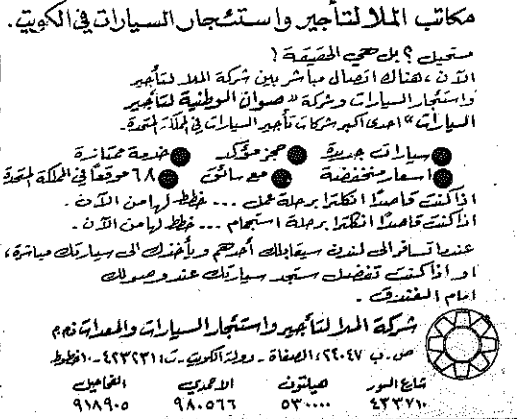 مكاتب الملا لتأجير واستئجار السيارات في الكويت.
مستحيل؟ بل هي الحقيقة!
الآن، هناك اتصال مباشر بين شركة الملا لتأجير
واستئجار السيارات وشركة «صوان الوطنية لتأجير
السيارات» احدى اكبر شركات تأجير السيارات في المملكة المتحدة.
سيارات جديدة حجز مؤكد خدمة ممتازة
اسعار منخفضة مع سائق ٦٨ موقعًا في المملكة المتحدة
اذا كنت قاصدًا انكلترا برحلة عمل ... خطط لها من الآن.
اذا كنت قاصدًا انكلترا برحلة استجمام ... خطط لها من الآن.
عندما تسافر الى لندن سيقابلك أحدهم ويأخذك الى سيارتك مباشرة،
او اذا كنت تفضل ستجد سيارتك عند وصولك
امام الفندق.
شركة الملا لتأجير واستئجار السيارات والمعدات ذ.م.م
ص.ب ٢٤٠٤٧، الصفاة - دولة الكويت - ت: ٤٢٣٢٣١ - ١٠ خطوط
شارع السور هيلتون الاحمدي الفحاحيل
٤٣٣٧١٠ ٥٣٠٠٠٠ ٩٨٠٥٦٦ ٩١٨٩٠٥